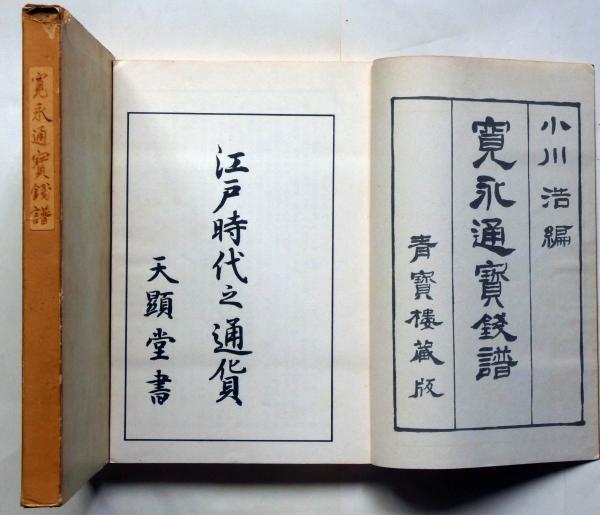 寛永通寳錢譜
小川浩編
寛永通寳錢譜
青寳樓藏版
江戸時代之通貨
天顕堂書